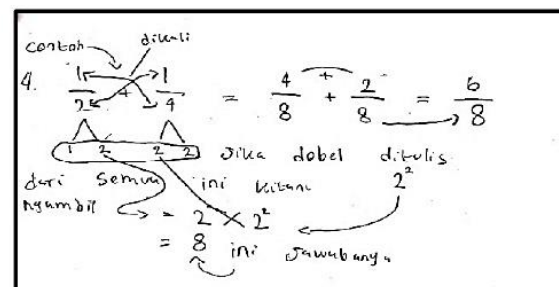 contoh dikali
4. 1/2 + 1/4 = 4/8 + 2/8 = 6/8
1 2 2 2 Jika dobel ditulis
dari semua ini kitam 2²
ngambil
= 2 × 2²
= 8 ini jawabanya